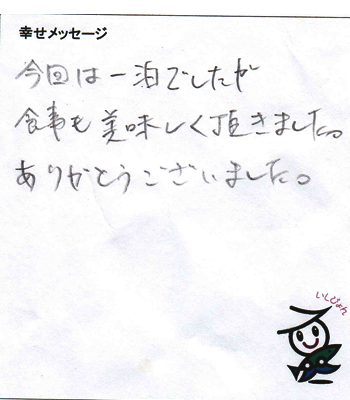 幸せメッセージ
今回は一泊でしたが
食事も美味しく頂きました。
ありがとうございました。
いしぴょん